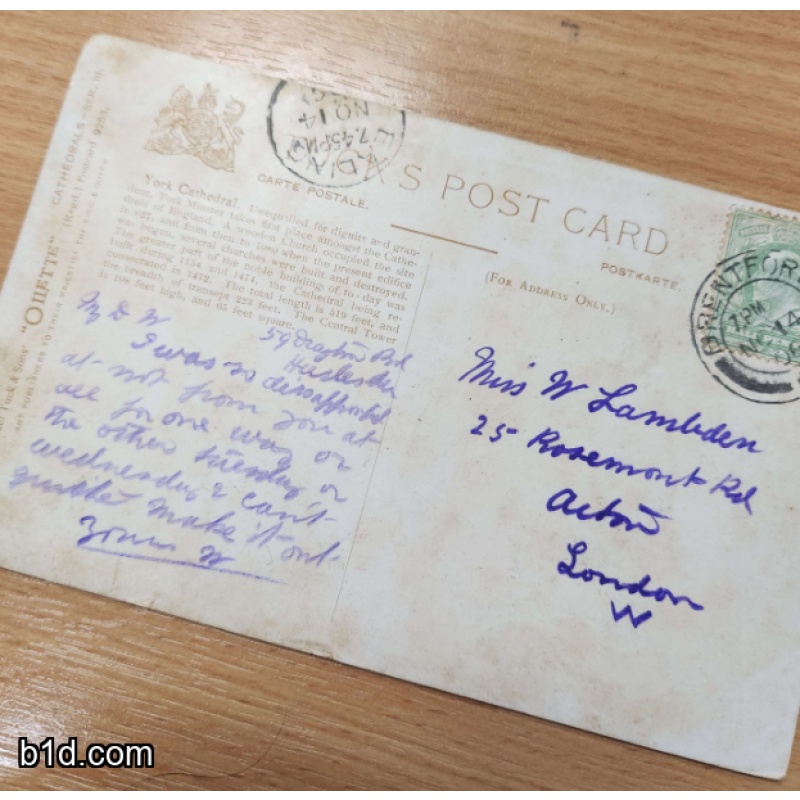 "OILETTE" CATHEDRALS—SER.
Tuck & Sons'
[Regd.] Postcard
THE KING & QUEEN
DING
7.45PM
NO 14
CARTE POSTALE.
S POST CARD
POSTKARTE.
(FOR ADDRESS ONLY.)
York Cathedral. Unequalled for dignity and gran-
deur, York Minster takes first place amongst the Cathe-
drals of England. A wooden Church occupied the site
in 627, and from then to 1080 when the present edifice
was begun, several churches were built and destroyed.
The greater part of the noble building of to-day was
built during 1154 and 1474, the Cathedral being re-
consecrated in 1472. The total length is 519 feet, and
the breadth of transept 223 feet. The Central Tower
is 198 feet high, and 65 feet square.
BRENTFOR
7 PM
14
My D W
59 Rd
I was so disappointed
at not from you at
all for one way or
the other Tuesday or
wednesday & can't
make it out
Yours W
Miss W Lambden
25 Rosemont Rd
Acton
London
W
b1d.com